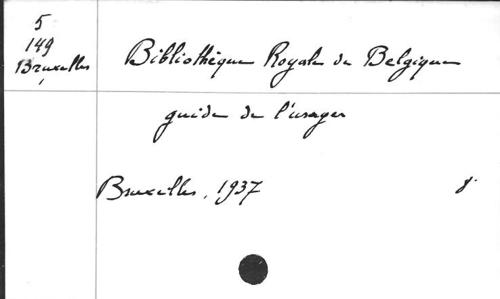 5
149
Bruxelles
Bibliothèque Royale de Belgique
guide de l'usager
Bruxelles, 1937
8°